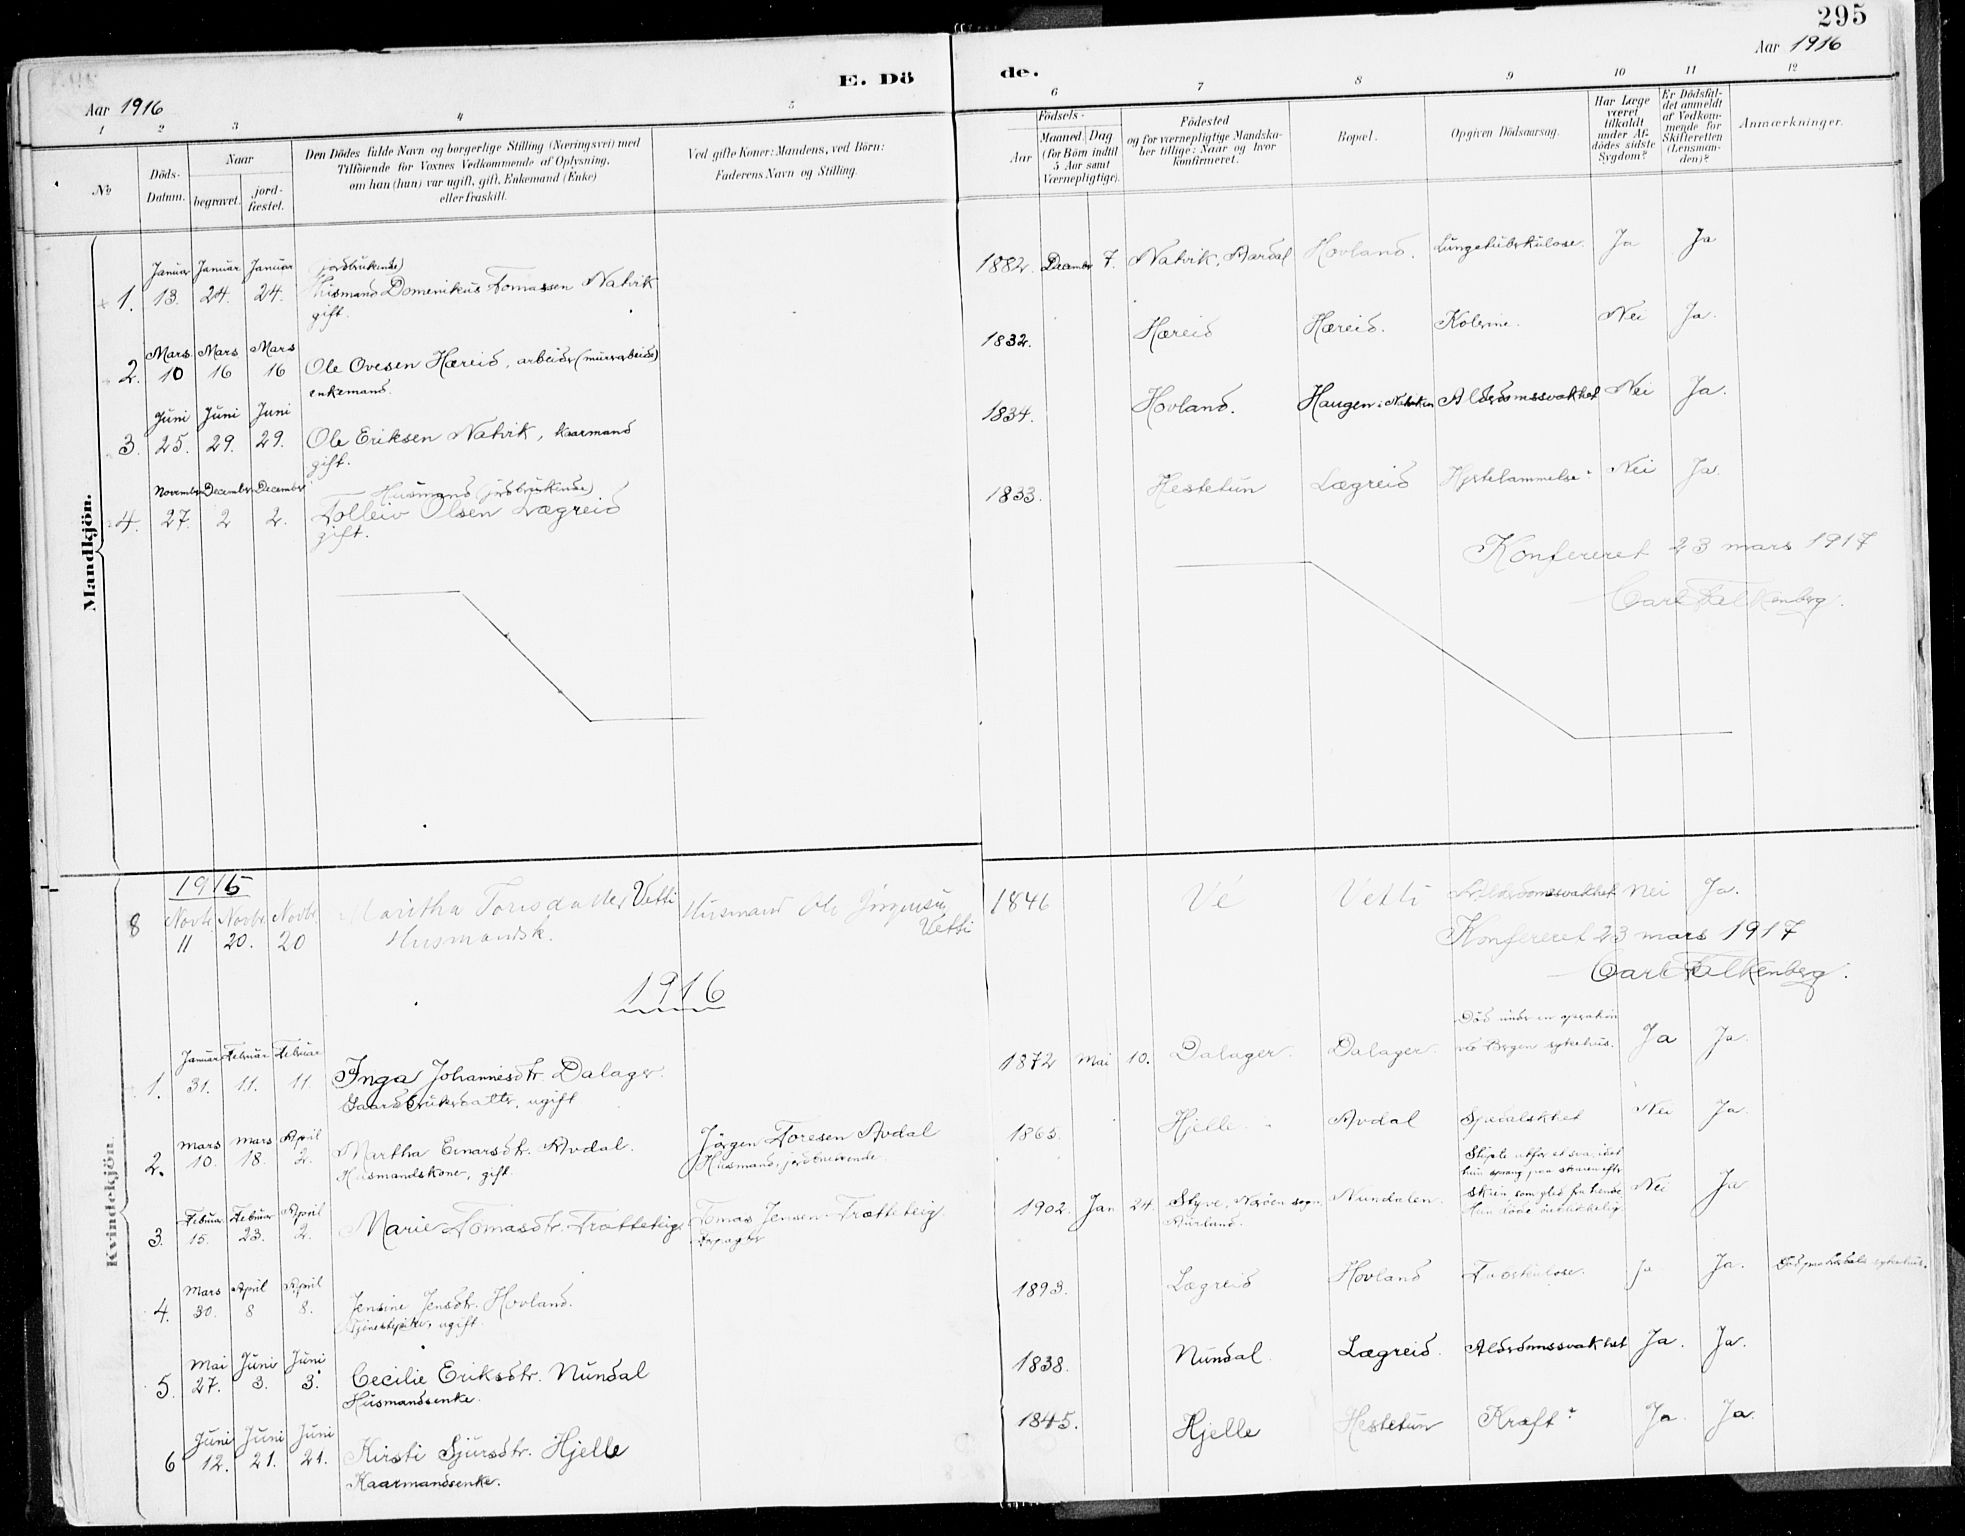 295
Aar 1916
Aar 1916
E. Dö
de.
1 2 3 4 5
6 7 8 9 10 11 12
No
Döds-
Datum.
Naar
begravet.
jord-
fæstet.
Den Dödes fulde Navn og borgerlige Stilling (Næringsvei) med
Tilföiende for Voxnes Vedkommende af Oplysning,
om han (hun) var ugift, gift, Enkemand (Enke)
eller fraskilt.
Ved gifte Koner: Mandens, ved Börn:
Faderens Navn og Stilling.
Födsels-
Aar
Maaned. Dag
(for Börn indtil
5 Aar samt
Værnepligtige).
Födested
og for værnepligtige Mandska-
ber tillige: Naar og hvor
konfirmeret.
Bopæl.
Opgiven Dödsaarsag.
Har Læge
været
tilkaldt
under Af-
dödes sidste
Sygdom?
Er Dödsfal-
det anmeldt
af Vedkom-
mende for
Skifteretten
(Lensman-
den)?
Anmærkninger.
Mandkjön.
Januar Januar Januar (jordbrukende)
1. 13. 24. 24. Husmand Domenikus Tomassen Natvik
gift.
1882. December 7. Natvik, Aardal Hovland. Lungetuberkulose. Ja Ja
Mars Mars Mars
2. 10 16 16 Ole Ovesen Hæreid, arbeider (murerarbeide)
enkemand.
1832. Hæreid Hæreid. Kolerine. Nei Ja.
Juni Juni Juni
3. 25. 29. 29. Ole Eriksen Natvik, kaarmand
gift.
1834. Hovland. Haugen i Natvik Alderdomssvakhet Nei Ja.
November December December Husmand (jordbrukende)
4. 27. 2 2. Tolleiv Olsen Lægreid
gift.
1833. Hestetun Lægreid Hjertelammelse? Nei Ja.
Konfereret 23 mars 1917
Carl Falkenberg.
Kvindekjön.
1915
8 Novbr. Novbr. Novbr. Maritha Torisdatter Vetti Husmand Ole Jörgensen
11 20. 20 Husmandsk. Vetti
1846 Vé Vetti Alderdomssvakhet Nei Ja.
Konfereret 23 mars 1917
Carl Falkenberg.
1916
Januar Februar Februar
1. 31. 11. 11. Inga Johannesdtr. Dalager.
Gaardbrukerdatter, ugift
1872 Mai 10. Dalager. Dalager. Död under en operation Ja Ja.
ved Bergen sykehus.
Mars Mars April
2. 10. 18. 2. Martha Einarsdtr. Avdal. Jörgen Toresen Avdal
Husmandskone, gift. Husmand, jordbrukende.
1865. Hjelle. Avdal Spedalskhet Nei Ja.
Februar Februar April
3. 15. 23. 2. Marie Tomasdtr. Trætteteig Tomas Jensen Trætteteig
1902. Jan 24. Styve, Næröen sogn, Nundalen. Nei Ja
Aurland.
hun sprang paa skaren efter
skien som gled fra hende
Hun döde öieblikkelig
Mars April April
4. 30. 8 8. Jensine Jensdtr. Hovland.
Tjenestepike, ugift.
1893. Lægreid Hovland Tuberkulose. Ja Ja. Död paa Lærdals sykehus.
Mai Juni Juni
5. 27. 3. 3. Cecilie Eriksdtr. Nundal
Husmandsenke.
1838. Nundal. Lægreid. Alderdomssvakhet Ja. Ja.
Juni Juni Juni
6 12. 21. 21. Kirsti Sjursdtr. Hjelle
Kaarmandsenke.
1845. Hjelle Hestetun Kræft? Ja. Ja.